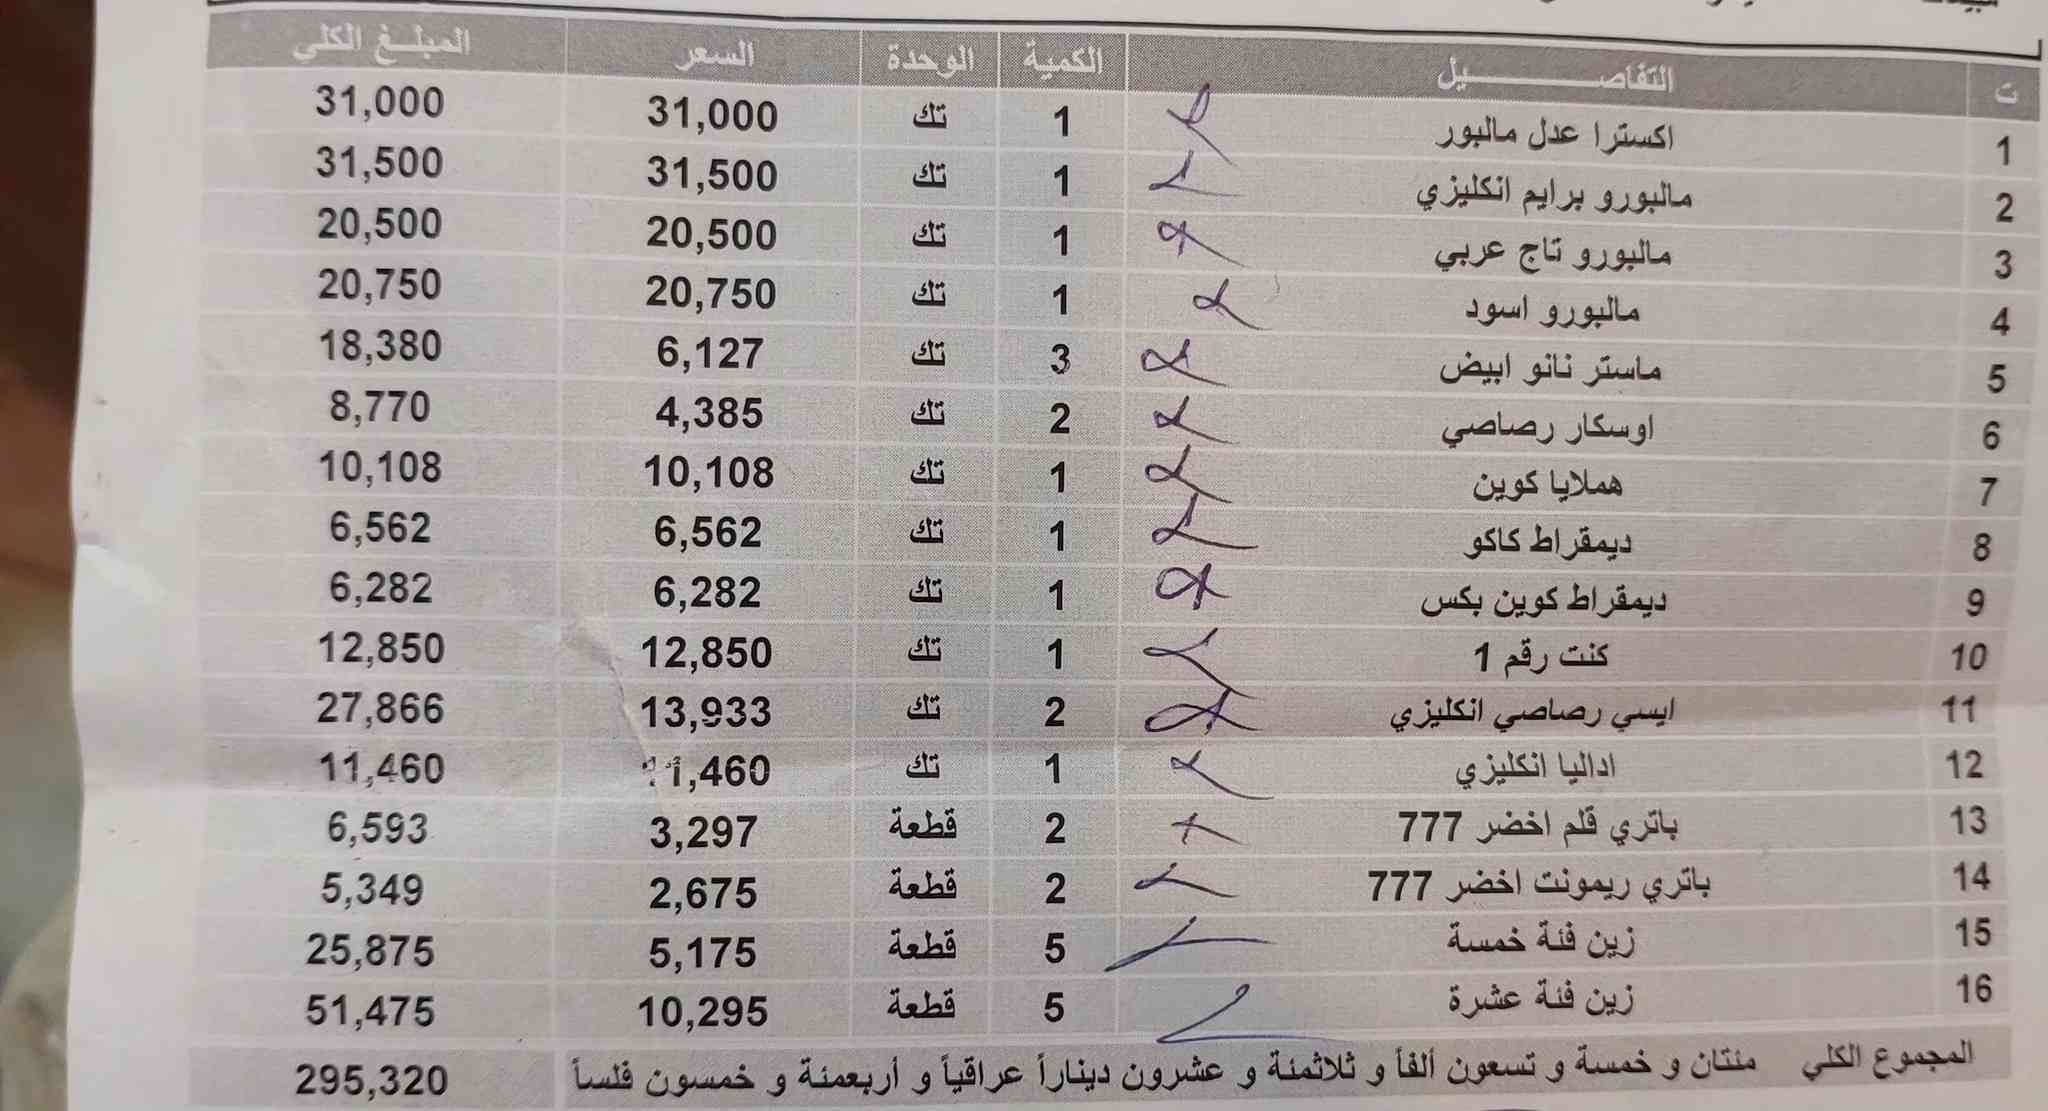 ت التفاصيل الكمية الوحدة السعر المبلغ الكلي
1 اكسترا عدل مالبور 1 تك 31,000 31,000
2 مالبورو برايم انكليزي 1 تك 31,500 31,500
3 مالبورو تاج عربي 1 تك 20,500 20,500
4 مالبورو اسود 1 تك 20,750 20,750
5 ماستر نانو ابيض 3 تك 6,127 18,380
6 اوسكار رصاصي 2 تك 4,385 8,770
7 هملايا كوين 1 تك 10,108 10,108
8 ديمقراط كاكو 1 تك 6,562 6,562
9 ديمقراط كوين بكس 1 تك 6,282 6,282
10 كنت رقم 1 1 تك 12,850 12,850
11 ايسي رصاصي انكليزي 2 تك 13,933 27,866
12 اداليا انكليزي 1 تك 11,460 11,460
13 باتري قلم اخضر 777 2 قطعة 3,297 6,593
14 باتري ريمونت اخضر 777 2 قطعة 2,675 5,349
15 زين فئة خمسة 5 قطعة 5,175 25,875
16 زين فئة عشرة 5 قطعة 10,295 51,475
المجموع الكلي مئتان و خمسة و تسعون ألفاً و ثلاثمئة و عشرون ديناراً عراقياً و أربعمئة و خمسون فلساً 295,320